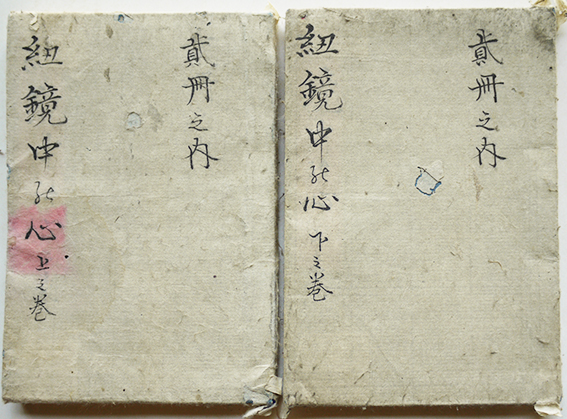 貳冊之内
紐鏡中能心 上之巻
貳冊之内
紐鏡中能心 下之巻